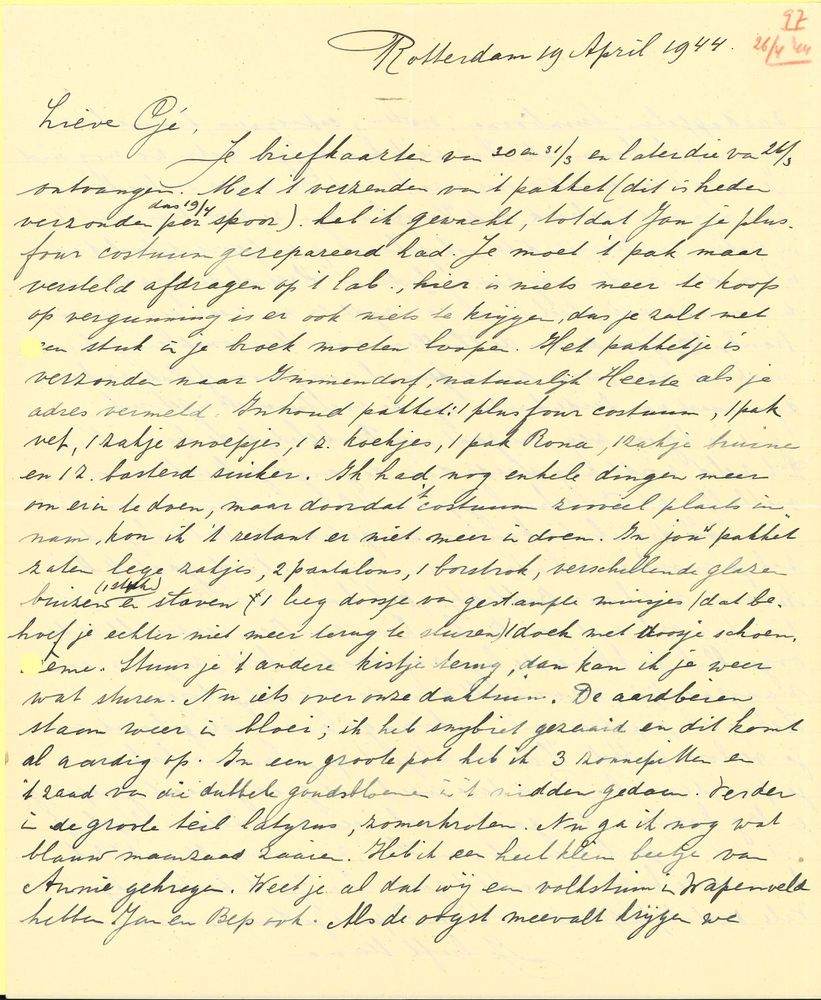 97
26/4 '44
Rotterdam 19 April 1944.
Lieve Gé,
Je briefkaarten van 30 en 31/3 en later die van 26/3
ontvangen. Met 't verzenden van 't pakket (dit is heden
dus 19/4
verzonden per spoor). heb ik gewacht, totdat Jan je plus-
four costuum gerepareerd had. Je moet 't pak maar
versteld afdragen op 't lab., hier is niets meer te koop
op vergunning is er ook niets te krijgen, dus je zult met
een stuk in je broek moeten loopen. Het pakketje is
verzonden naar Gummendorf, natuurlijk Heerte als je
adres vermeld. Inhoud pakket: 1 plusfour costuum, 1 pak
vet, 1 zakje snoepjes, 1 z. koekjes, 1 pak Rona, 1 zakje bruine
en 1 z. basterd suiker. Ik had nog enkele dingen meer
om erin te doen, maar doordat 't costuum zooveel plaats in
nam, kon ik 't restant er niet meer in doen. In jouw pakket
zaten lege zakjes, 2 pantalons, 1 borstrok, verschillende glazen
(1 stuk)
buizen en staven 1 leeg doosje van gestampte muisjes (dat be-
hoef je echter niet meer terug te sturen) 1 doek met doosje schoen-
ème. Stuur je 't andere kistje terug, dan kan ik je weer
wat sturen. Nu iets over onze daktuin. De aardbeien
staan weer in bloei; ik heb snijbiet gezaaid en dit komt
al aardig op. In een groote pot heb ik 3 zonnepitten en
't zaad van die dubbele goudsbloemen in 't midden gedaan. Verder
in de groote teil latyrus, zomerkroten. Nu ga ik nog wat
blauw maanzaad zaaien. Heb ik een heel klein beetje van
Annie gekregen. Weet je al dat wij een volkstuin in Wapenveld
hebben Jan en Bep ook. Als de oogst meevalt krijgen we